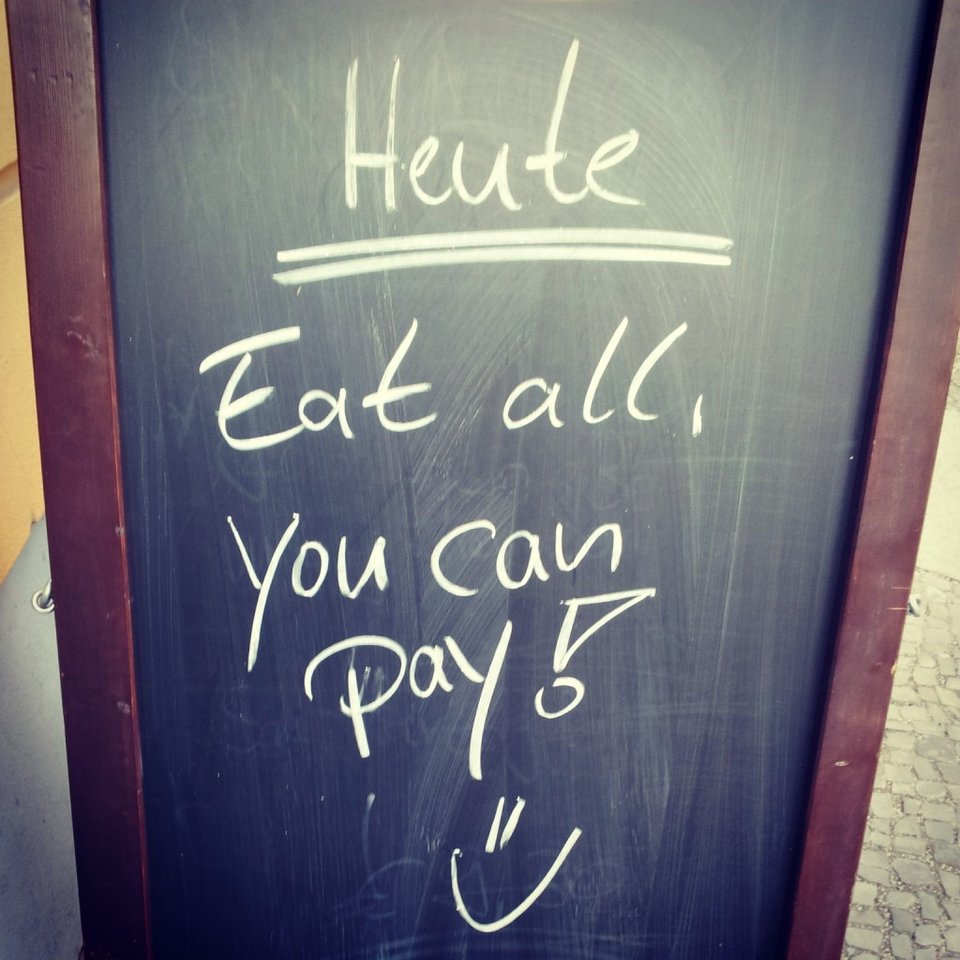 Heute
Eat all,
you can
pay!